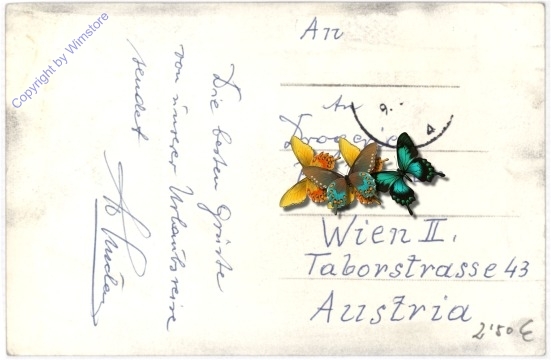 Copyright by Wimstore
Die besten Grüsse
von unserer Urlaubsreise
sendet
An
An
Wien II.
Taborstrasse 43
Austria
2'50 €